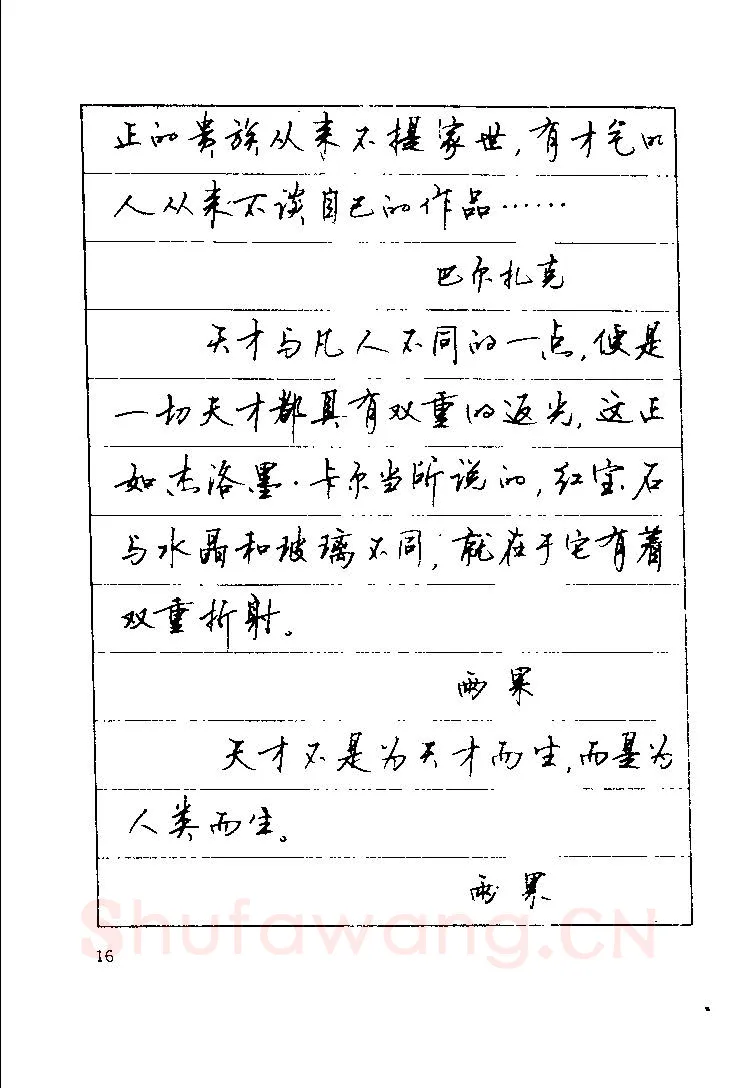 正的贵族从来不提家世,有才气的
人从来不谈自己的作品……
巴尔扎克
天才与凡人不同的一点,便是
一切天才都具有双重的返光,这正
如杰洛墨·卡尔当所说的,红宝石
与水晶和玻璃不同,就在于它有着
双重折射。
雨果
天才不是为天才而生,而是为
人类而生。
雨果
Shufawang.CN
16